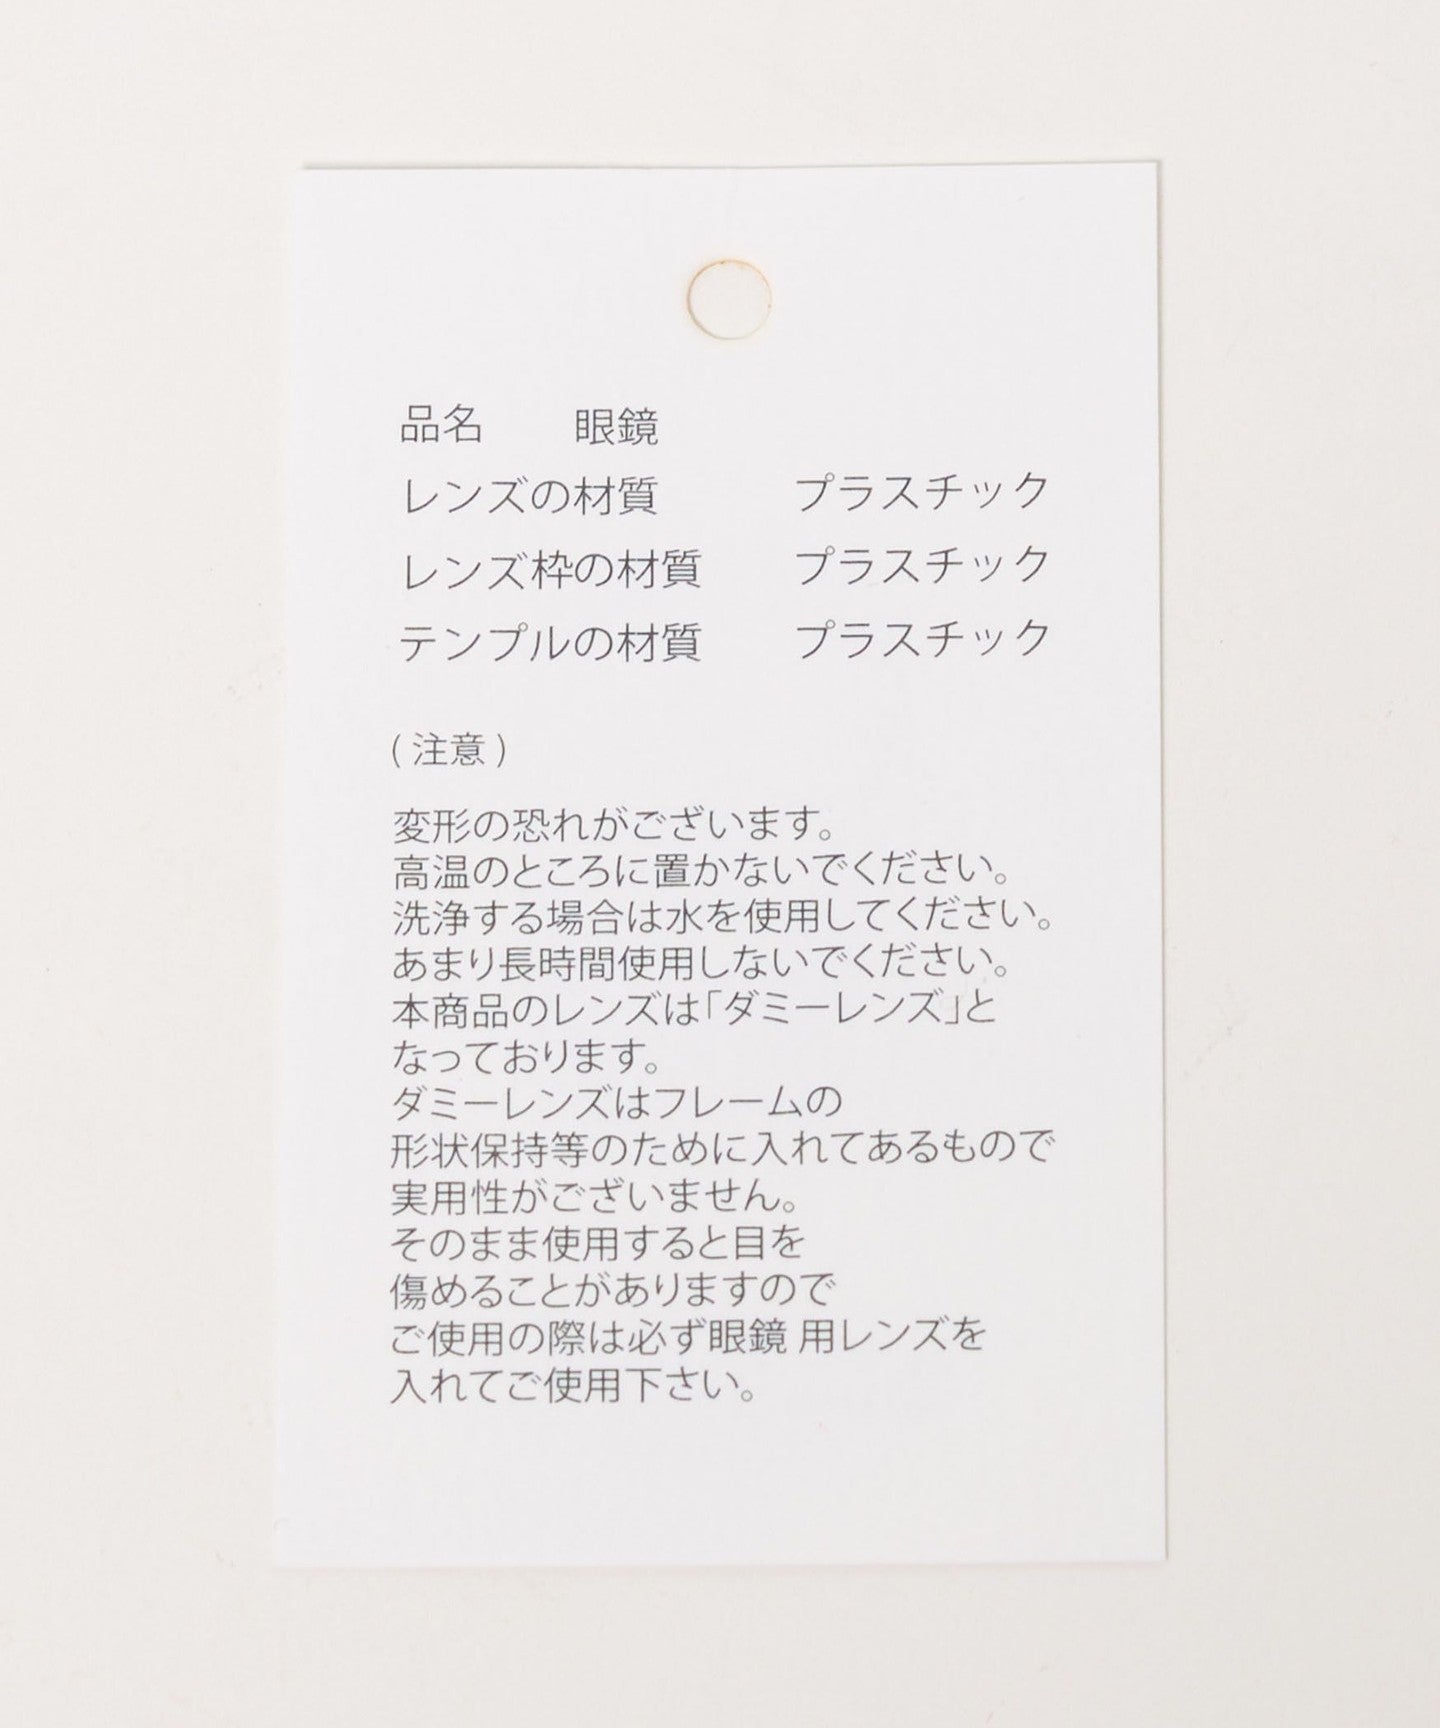 品名　　眼鏡
レンズの材質　　　プラスチック
レンズ枠の材質　　プラスチック
テンプルの材質　　プラスチック
( 注意 )
変形の恐れがございます。
高温のところに置かないでください。
洗浄する場合は水を使用してください。
あまり長時間使用しないでください。
本商品のレンズは「ダミーレンズ」と
なっております。
ダミーレンズはフレームの
形状保持等のために入れてあるもので
実用性がございません。
そのまま使用すると目を
傷めることがありますので
ご使用の際は必ず眼鏡 用レンズを
入れてご使用下さい。